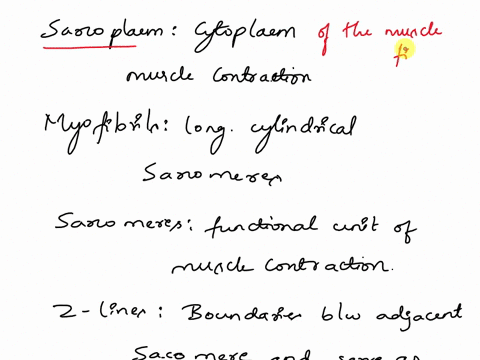 Sarcoplasm: Cytoplasm of the muscle
muscle contraction
Myofibrils: long. cylindrical
Sarcomeres
Sarcomeres: functional unit of
muscle contraction.
Z-lines: Boundaries b/w adjacent
Sacomere and serve as